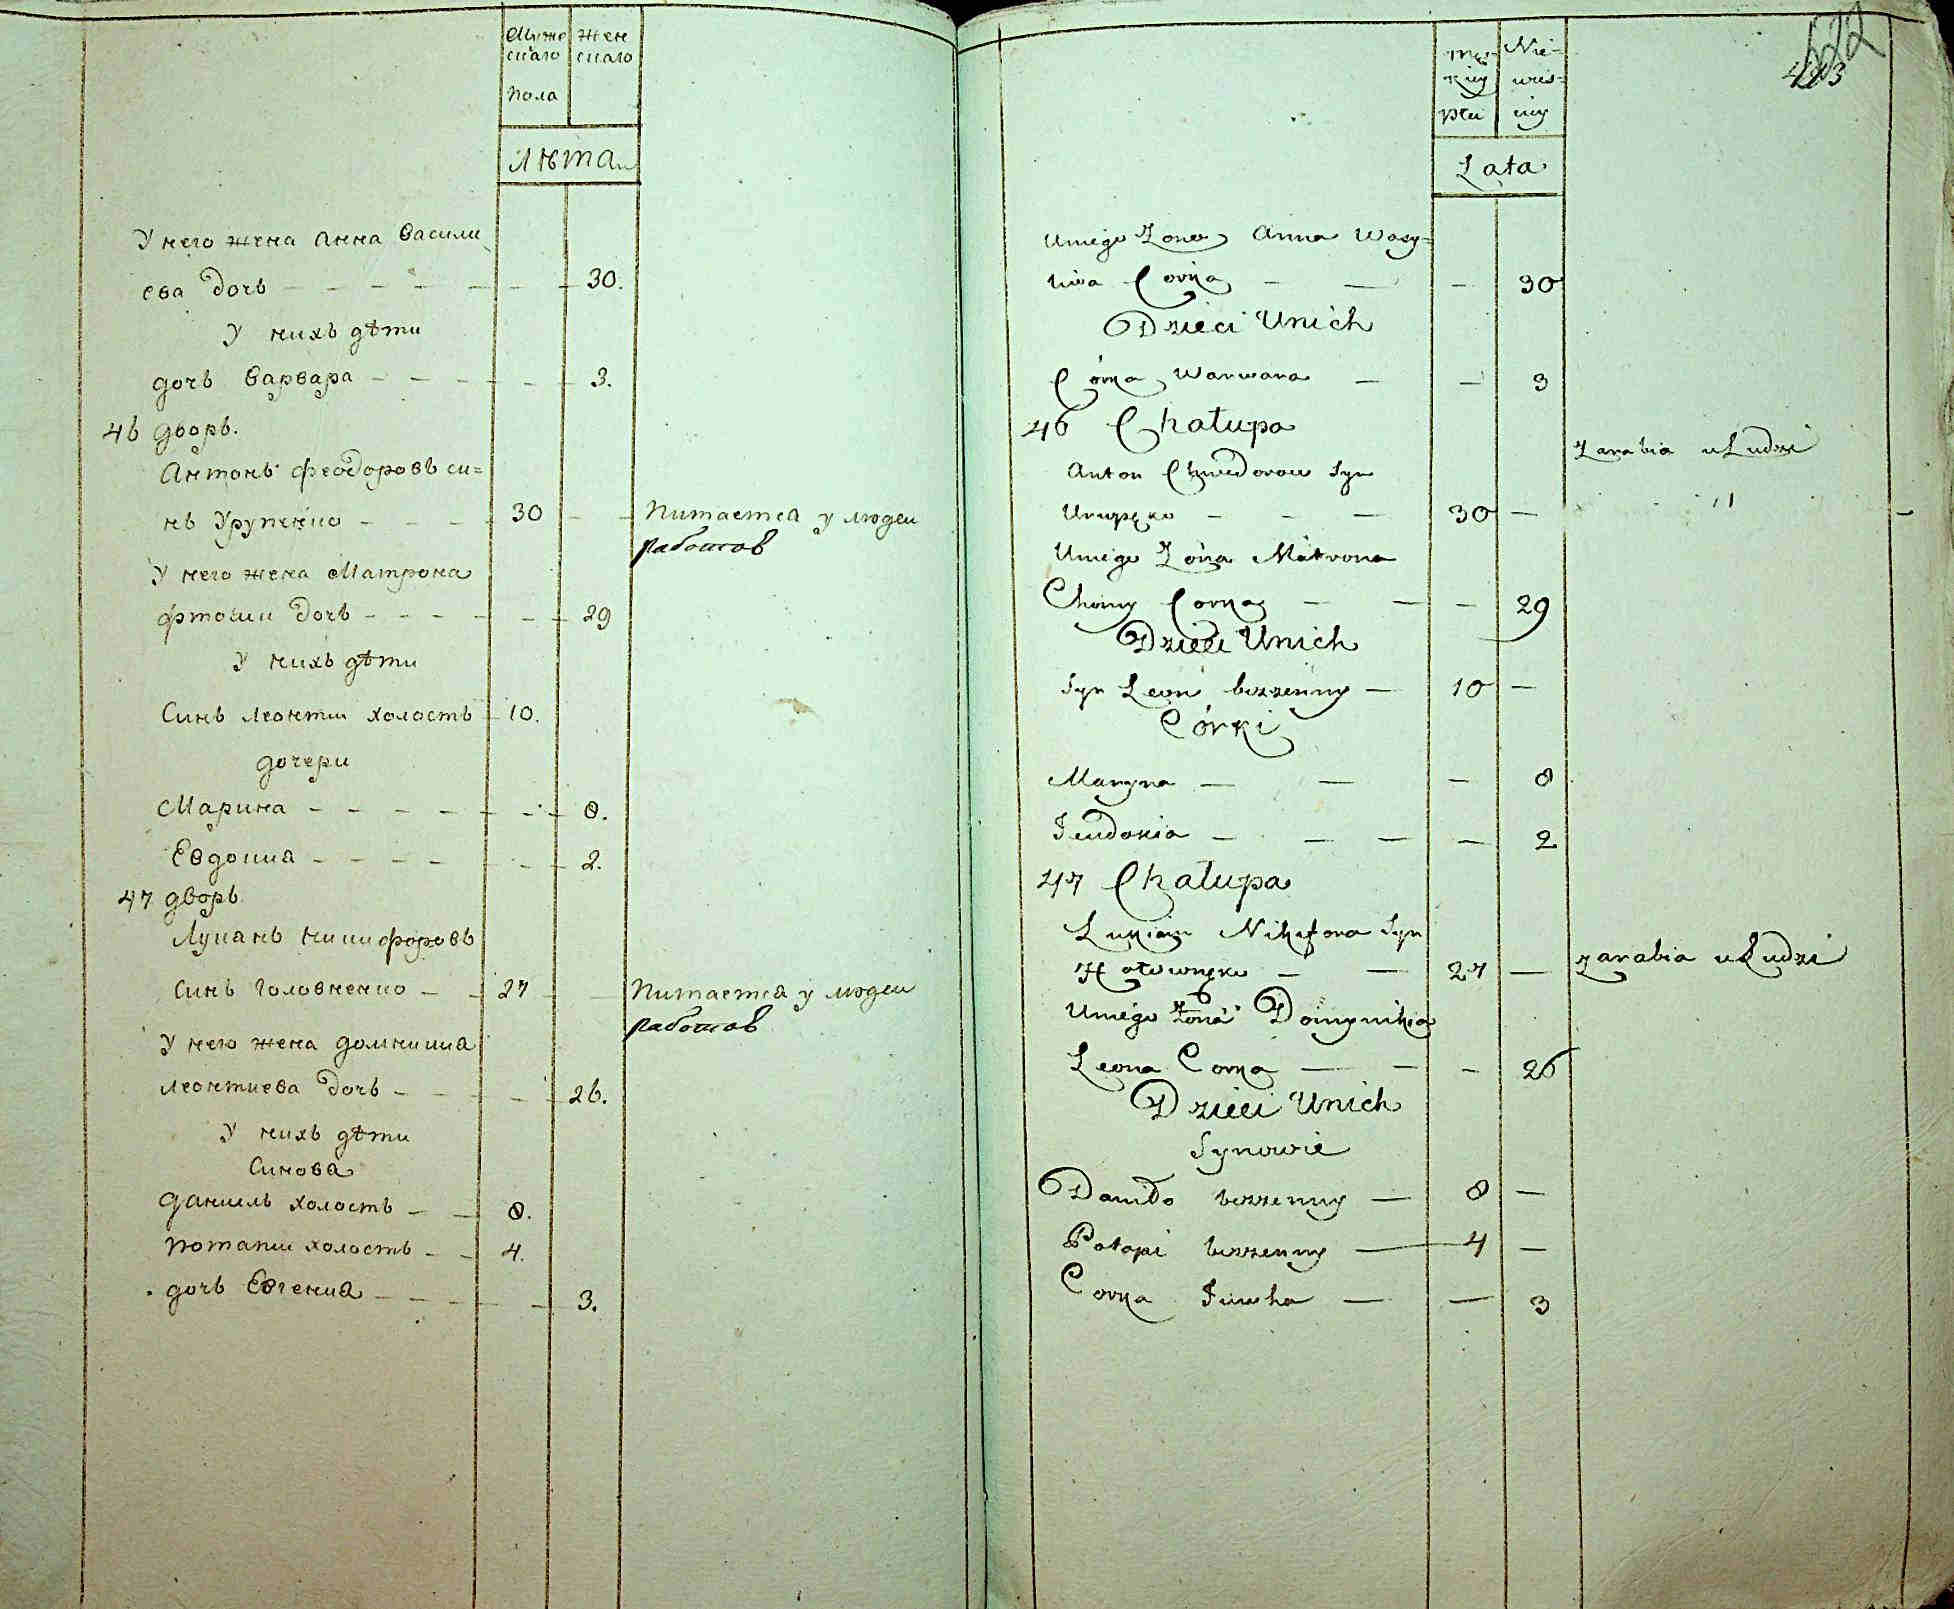 Мужескаго Женскаго
пола
Лѣта
У него жена Анна Васили
ева дочь - - - - - - 30.
У нихъ дѣти
дочь Варвара - - - - - 3.
46 дворъ.
Антонъ Феодоровъ си=
нъ Урупенко - - - - 30 - - Питается у людеи
работою
У него жена Матрона
дочь - - - - - - 29
У нихъ дѣти
Синъ Леонтии холостъ - 10.
дочери
Марина - - - - - - - 8.
Евдокиа - - - - - - 2.
47 дворъ
Луканъ Никифоровъ
Синъ Головненко - - 27 - - Питается у людеи
работою
У него жена Домникиа
Леонтиева дочь - - - - - 26.
У нихъ дѣти
Синова
Даниилъ холостъ - - 8.
Потапии холостъ - - 4.
дочь Евгениа - - - - - 3.
443
męzkiey Niewies-
płci ciey
Lata
Uniego Zona Anna Wasy=
liwa Corka - - - 30
Dzieci Unich
Córka Warwara - - 3
46 Chałupa
Zarabia u Ludzi
Anton Chwedorow Syn
Urupęko - - - 30 -
Uniego Zona Matrona
Chomy Corka - - - 29
Dzieci Unich
Syn Leon bezzenny - 10 -
Córki
Maryna - - - 8
Jewdokia - - - - 2
47 Chałupa
Lukian Nikifora Syn
Hołownęko - - 27 - zarabia u Ludzi
Uniego Zona Domynikia
Leona Corka - - - 26
Dzieci Unich
Synowie
Daniło bezzenny - 8 -
Potapi bezzenny - 4 -
Corka Jiwha - - 3